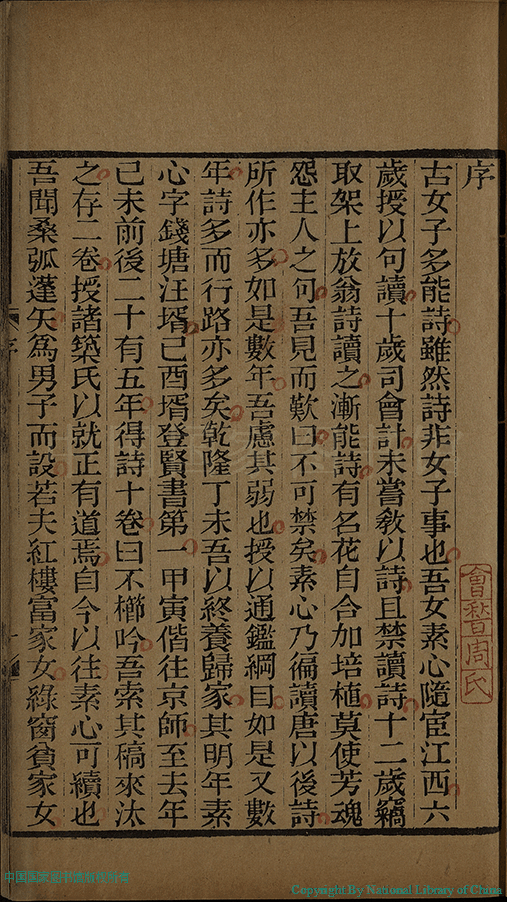 序
古女子多能詩雖然詩非女子事也吾女素心隨宦江西六
歲授以句讀十歲司會計未嘗敎以詩且禁讀詩十二歲竊
取架上放翁詩讀之漸能詩有名花自合加培植莫使芳魂
怨主人之句吾見而歎曰不可禁矣素心乃徧讀唐以後詩
所作亦多如是數年吾慮其弱也授以通鑑綱目如是又數
年詩多而行路亦多矣乾隆丁未吾以終養歸家其明年素
心字錢塘汪壻己酉壻登賢書第一甲寅偕往京師至去年
己未前後二十有五年得詩十卷曰不櫛吟吾索其稿來汰
之存二卷授諸築氏以就正有道焉自今以往素心可續也
吾聞桑弧蓬矢爲男子而設若夫紅樓富家女綠窗貧家女
序
一
會稽周氏
中国国家图书馆版权所有
Copyright By National Library of China